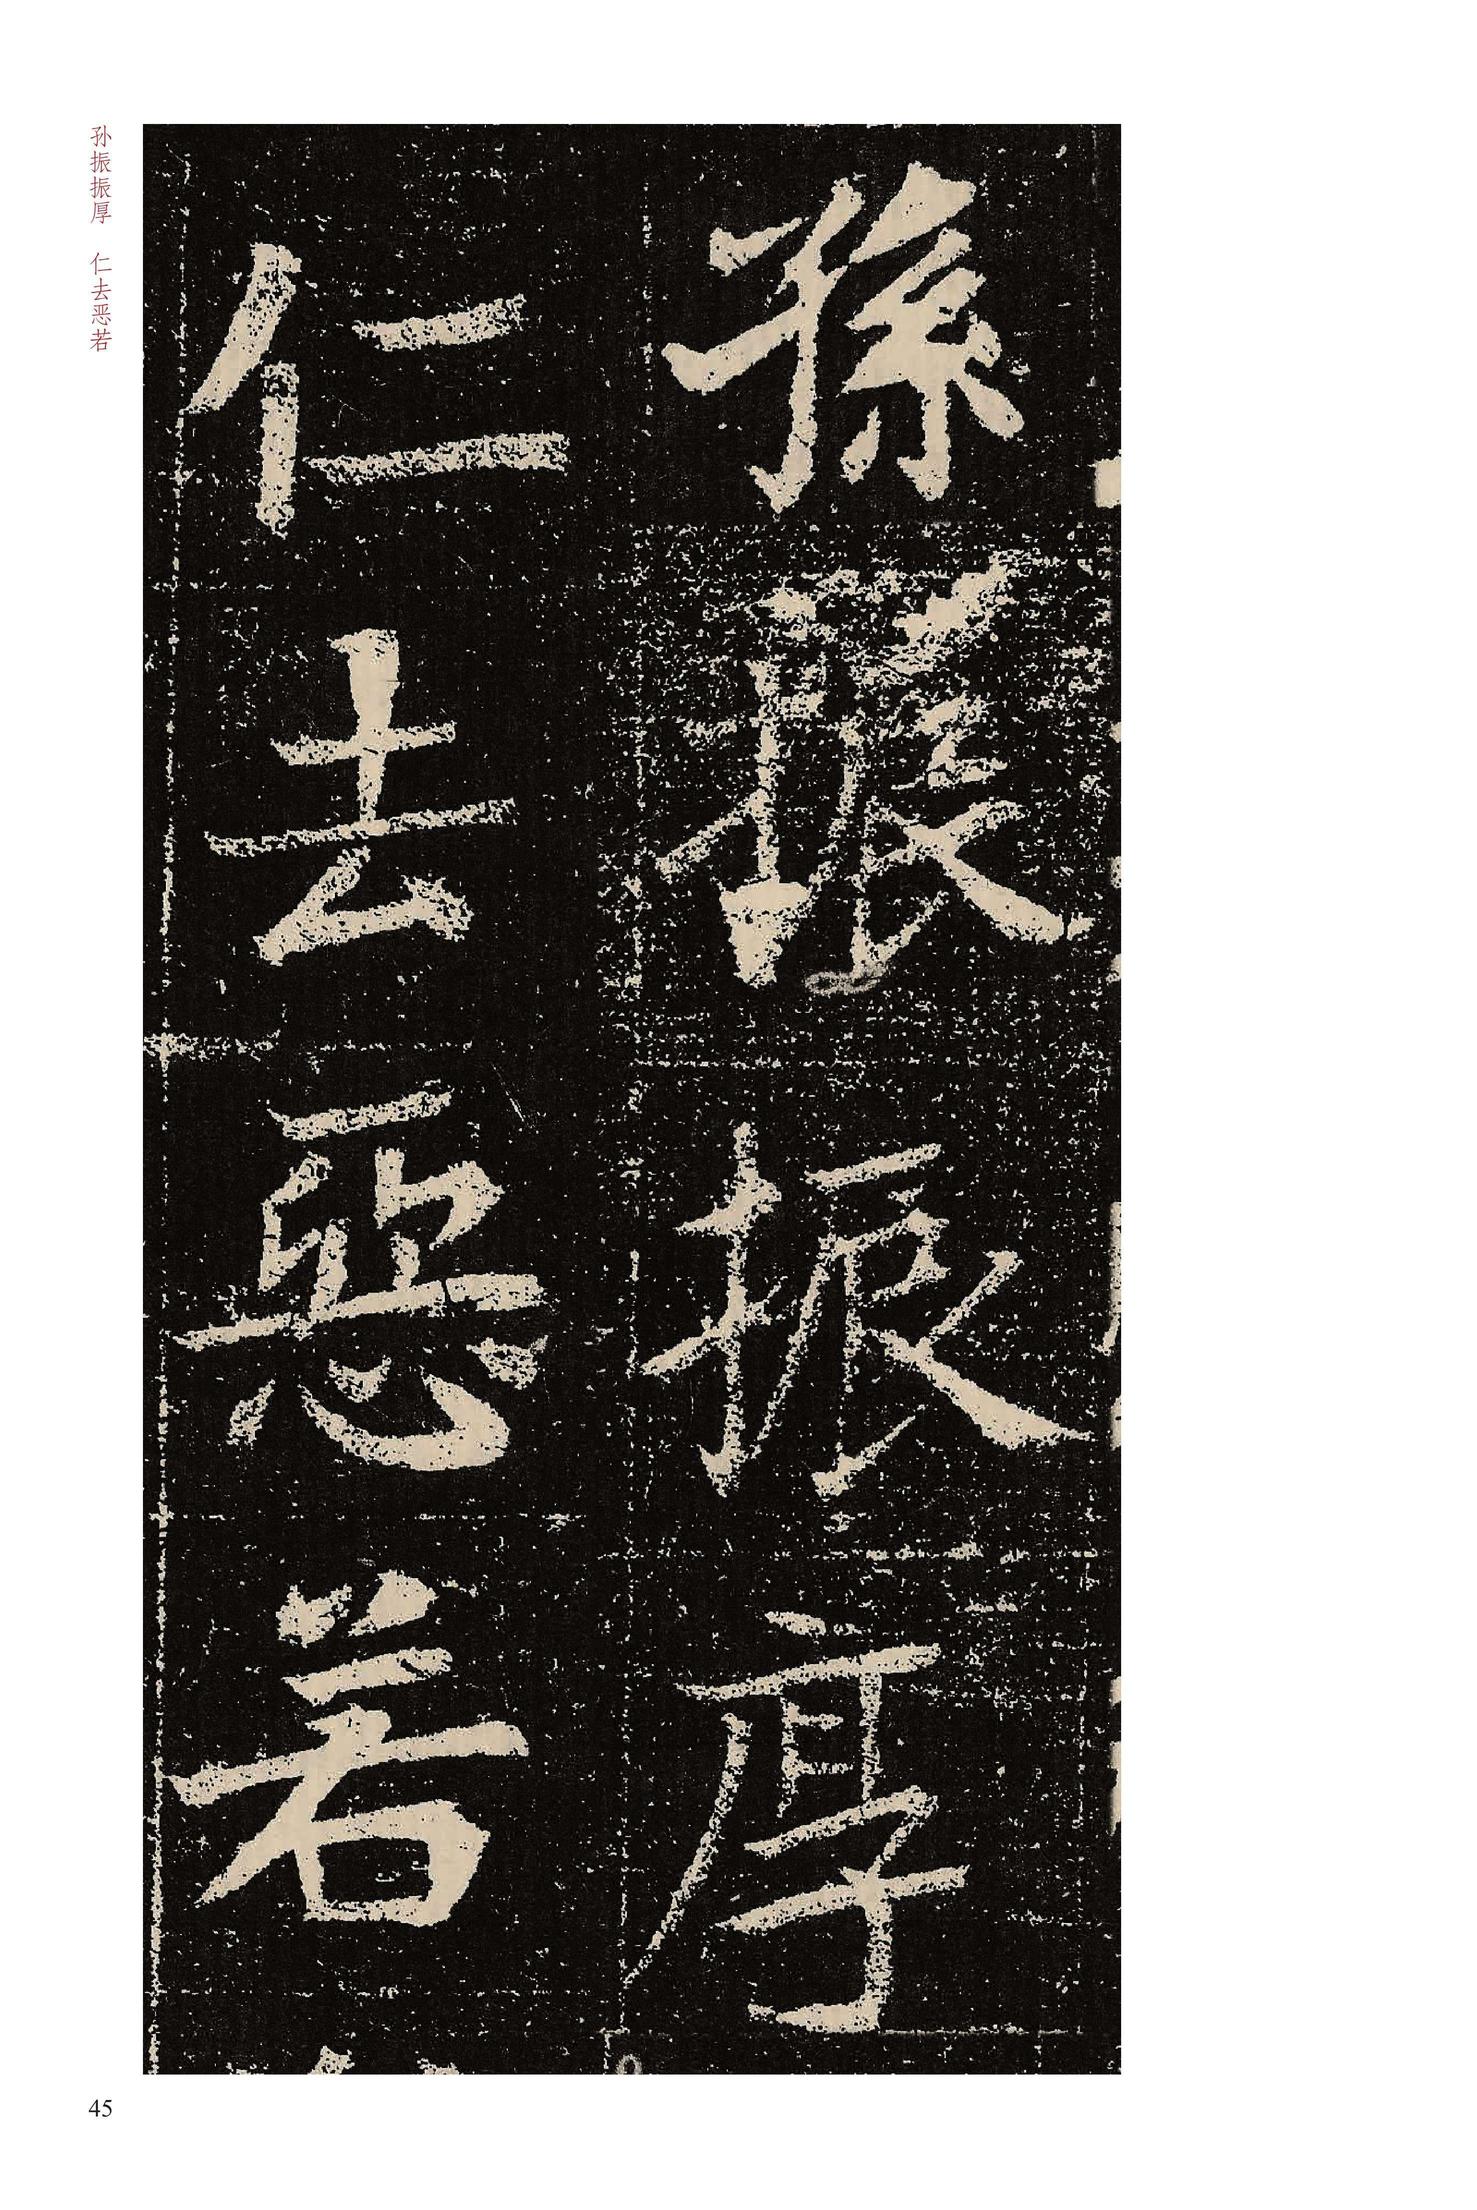 孫振振厚
仁去惡若
孙振振厚 仁去恶若
45